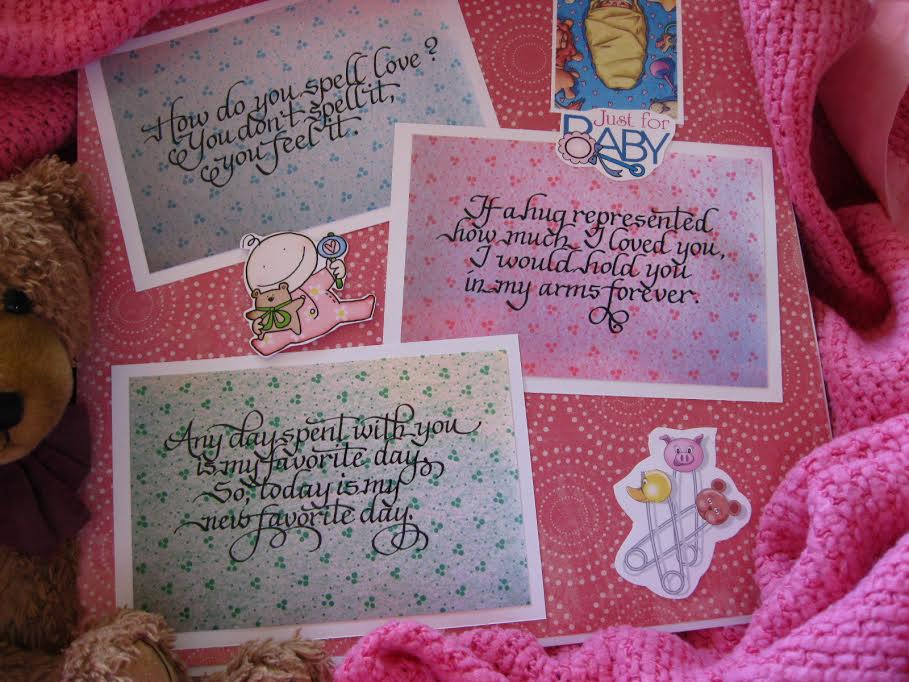 How do you spell love?
You don't spell it,
you feel it.
Just for
BABY
If a hug represented
how much I loved you,
I would hold you
in my arms forever.
Any day spent with you
is my favorite day.
So, today is my
new favorite day.